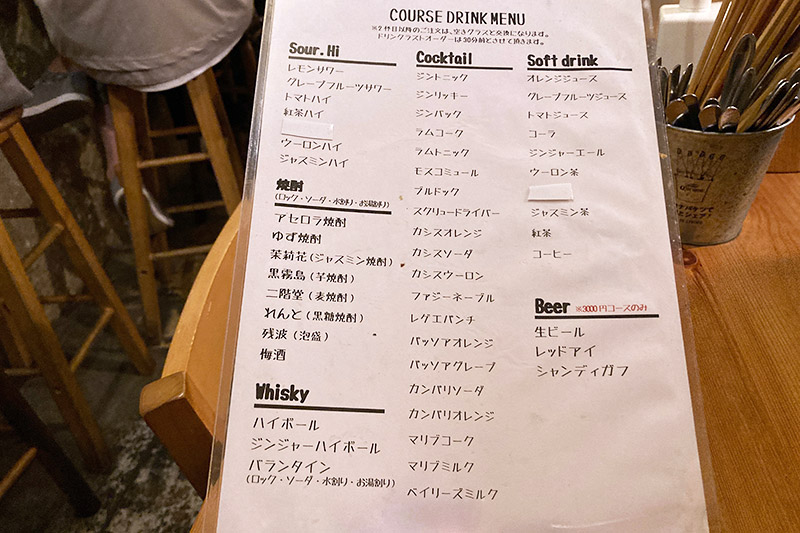 COURSE DRINK MENU
※2杯目以降のご注文は、空きグラスと交換になります。
ドリンクラストオーダーは30分前とさせて頂きます。
Sour. Hi
レモンサワー
グレープフルーツサワー
トマトハイ
紅茶ハイ
ウーロンハイ
ジャスミンハイ
焼酎
(ロック・ソーダ・水割り・お湯割り)
アセロラ焼酎
ゆず焼酎
茉莉花(ジャスミン焼酎)
黒霧島(芋焼酎)
二階堂(麦焼酎)
れんと(黒糖焼酎)
残波(泡盛)
梅酒
Whisky
ハイボール
ジンジャーハイボール
バランタイン
(ロック・ソーダ・水割り・お湯割り)
Cocktail
ジントニック
ジンリッキー
ジンバック
ラムコーク
ラムトニック
モスコミュール
ブルドック
スクリュードライバー
カシスオレンジ
カシスソーダ
カシスウーロン
ファジーネーブル
レゲエパンチ
パッソアオレンジ
パッソアグレープ
カンパリソーダ
カンパリオレンジ
マリブコーク
マリブミルク
ベイリーズミルク
Soft drink
オレンジジュース
グレープフルーツジュース
トマトジュース
コーラ
ジンジャーエール
ウーロン茶
ジャスミン茶
紅茶
コーヒー
Beer ※3000円コースのみ
生ビール
レッドアイ
シャンディガフ